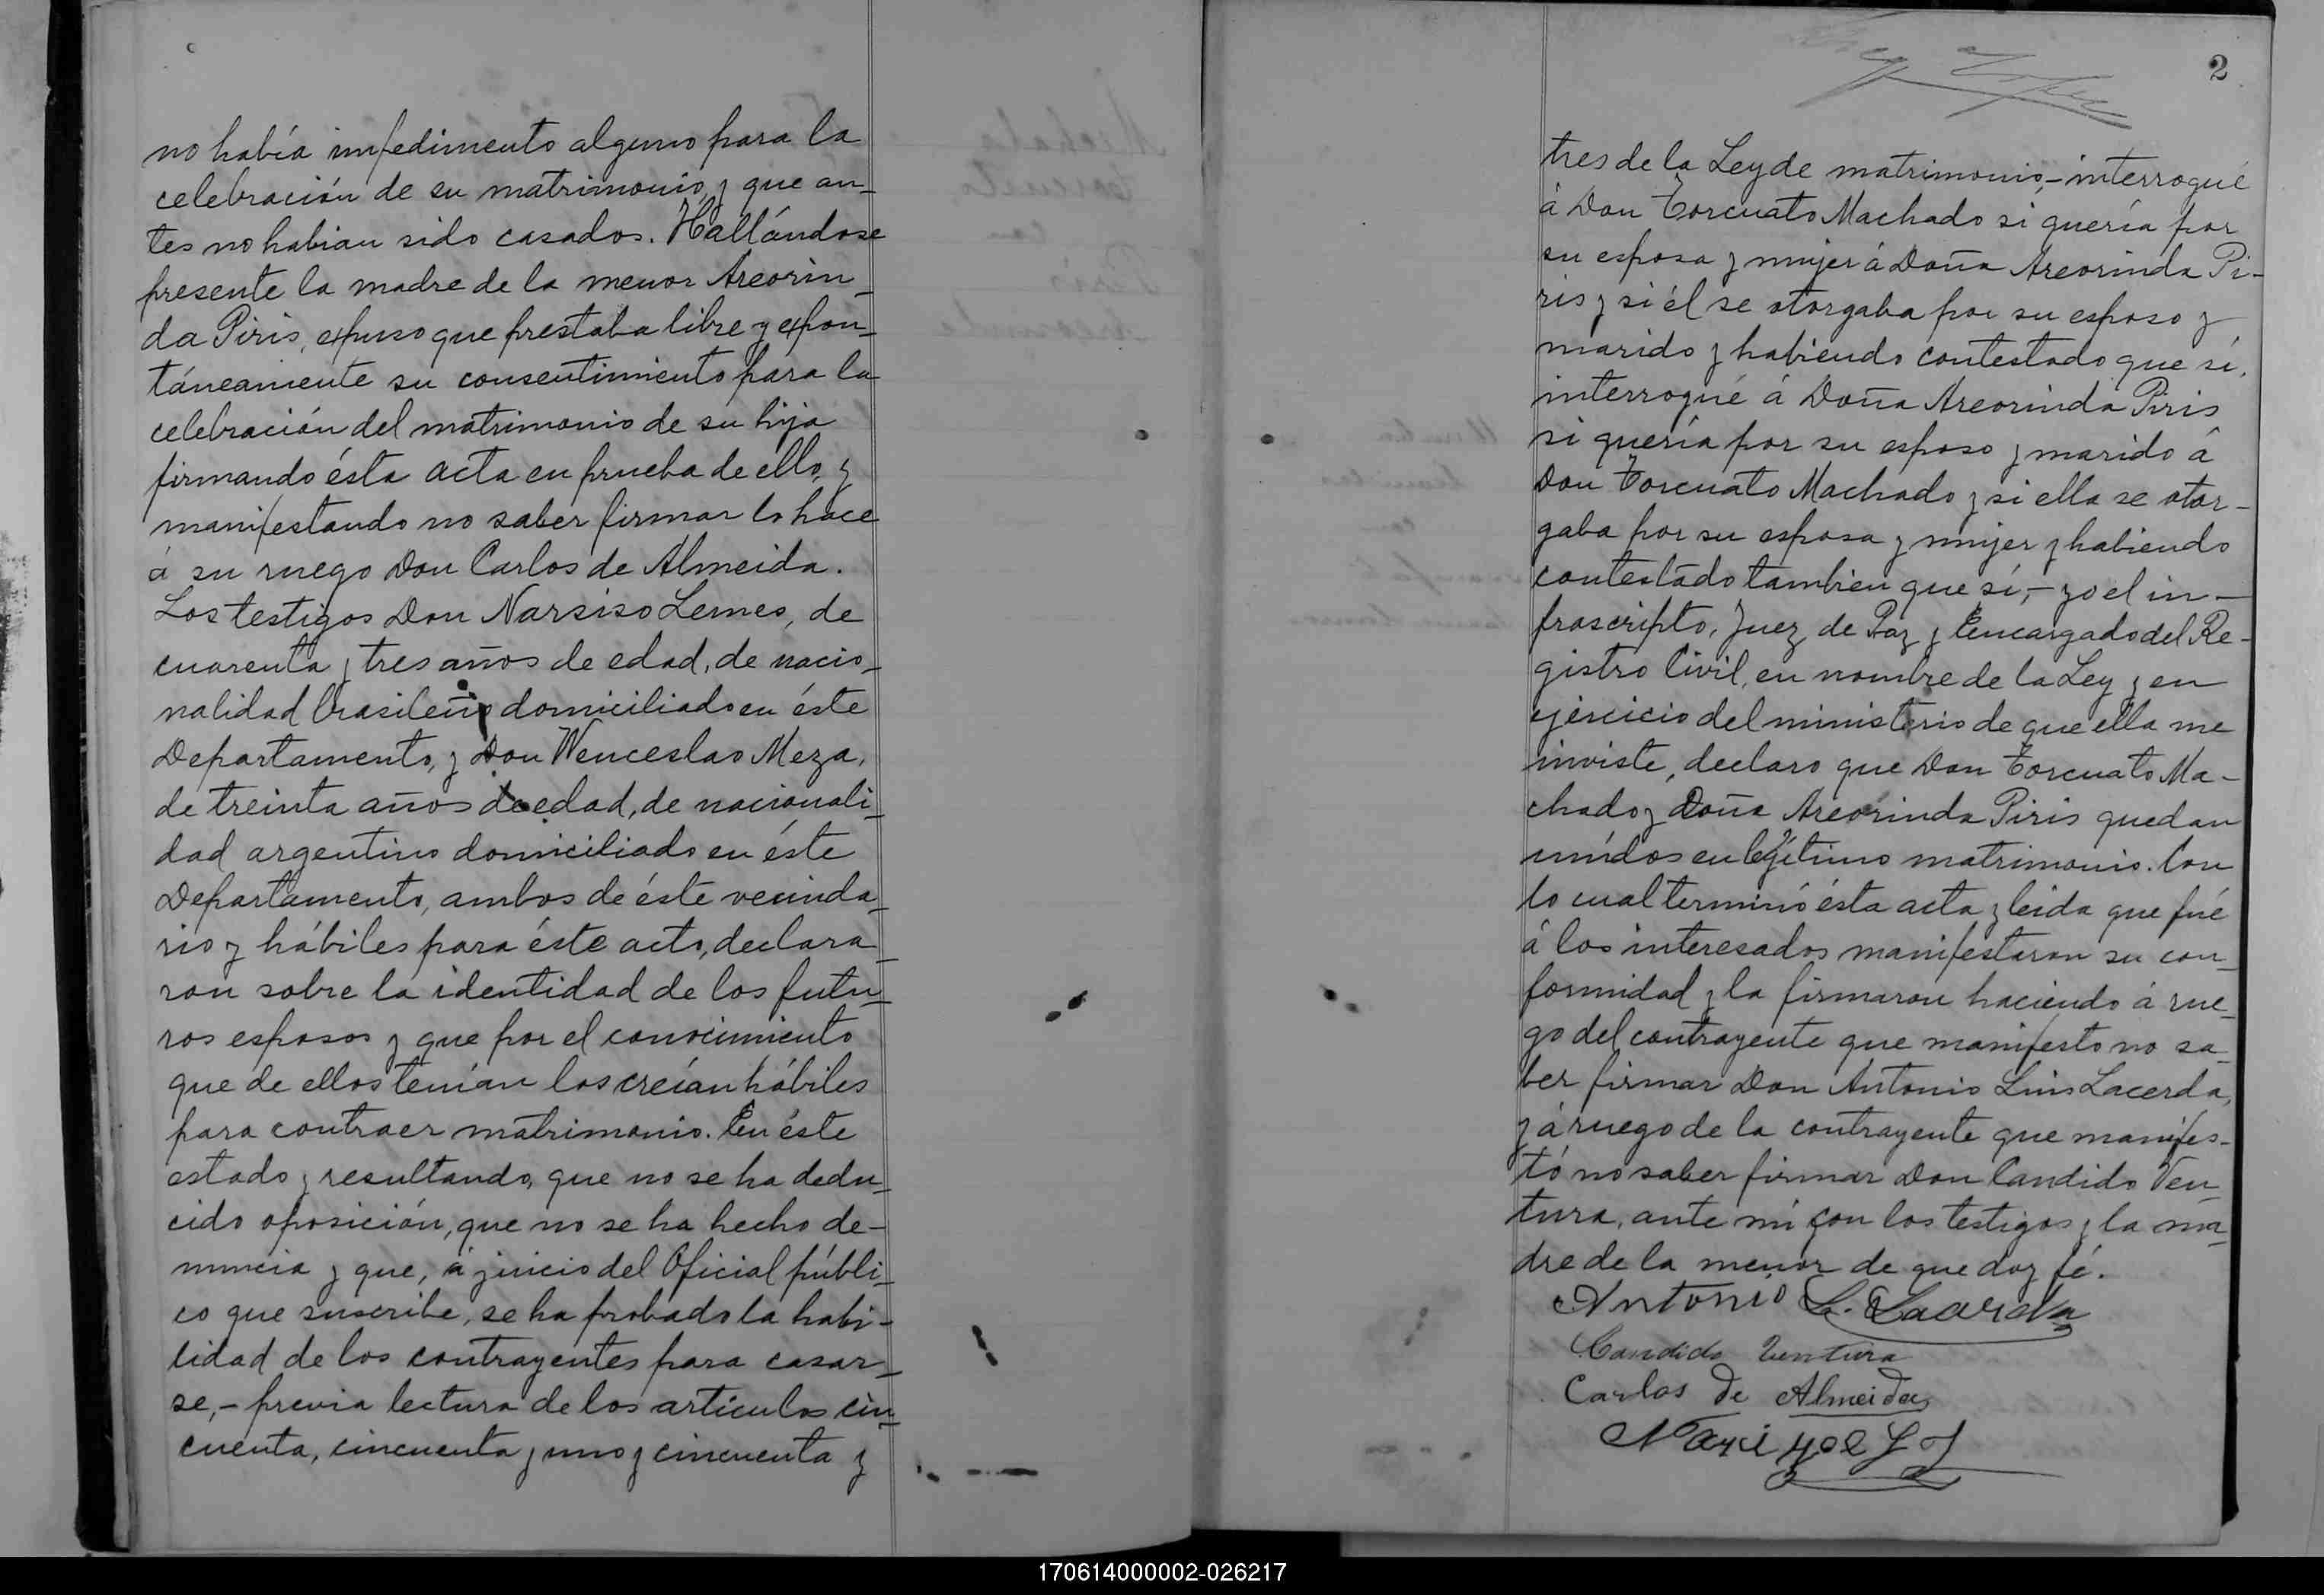 no había impedimento alguno para la
celebración de su matrimonio, y que an-
tes no habian sido casados. Hallándose
presente la madre de la menor Areorin-
da Piris, expuso que prestaba libre y expon-
táneamente su consentimiento para la
celebración del matrimonio de su hija
firmando ésta acta en prueba de ello, y
manifestando no saber firmar lo hace
á su ruego Don Carlos de Almeida.
Los testigos Don Narsiso Lemes, de
cuarenta y tres años de edad, de nacio-
nalidad brasileño domiciliado en éste
Departamento, y Don Wenceslao Meza,
de treinta años de edad, de nacionali-
dad argentino domiciliado en éste
Departamento, ambos de éste vecinda-
rio y hábiles para éste acto, declara-
ron sobre la identidad de los futu-
ros esposos y que por el conocimiento
que de ellos tenían los creían hábiles
para contraer matrimonio. En éste
estado y resultando, que no se ha dedu-
cido oposición, que no se ha hecho de-
nuncia y que, á juicio del Oficial públi-
co que suscribe, se ha probado la habi-
lidad de los contrayentes para casar-
se,- previa lectura de los artículos cin-
cuenta, cincuenta y uno y cincuenta y
2
tres de la Ley de matrimonio,- interrogué
á Don Torcuato Machado si quería por
su esposa y mujer á Doña Areorinda Pi-
ris y si él se otorgaba por su esposo y
marido y habiendo contestado que sí,
interrogué á Doña Areorinda Piris
si quería por su esposo y marido á
Don Torcuato Machado y si ella se otor-
gaba por su esposa y mujer y habiendo
contestado tambien que sí,- yo el in-
frascripto, Juez de Paz y Encargado del Re-
gistro Civil, en nombre de la Ley y en
ejercicio del ministerio de que ella me
inviste, declaro que Don Torcuato Ma-
chado y Doña Areorinda Piris quedan
unídos en legítimo matrimonio. Con
lo cual terminó ésta acta y leida que fué
á los interesados manifestaron su con-
formidad y la firmaron haciendo á rue-
go del contrayente que manifesto no sa-
ber firmar Don Antonio Luis Lacerda,
y á ruego de la contrayente que manifes-
tó no saber firmar Don Candido Ven-
tura, ante mí con los testigos y la ma-
dre de la menor de que doy fé.
Antonio L. Lacerda
Candido Ventura
Carlos de Almeida
170614000002-026217